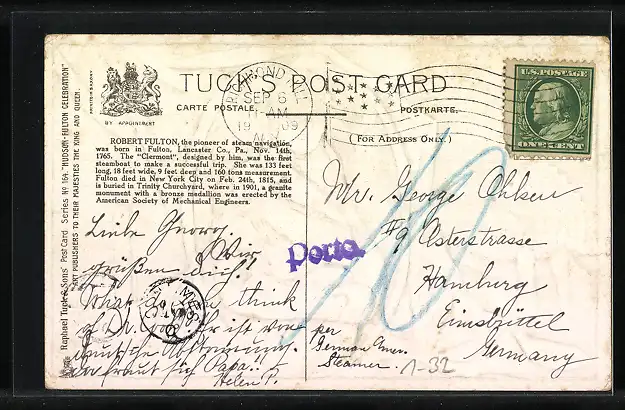 TUCK'S POST CARD
CARTE POSTALE.
POSTKARTE.
BY APPOINTMENT
(FOR ADDRESS ONLY.)
Raphael Tuck & Sons' Post Card Series Nº 164. "HUDSON-FULTON CELEBRATION"
ART PUBLISHERS TO THEIR MAJESTIES THE KING AND QUEEN.
ROBERT FULTON, the pioneer of steam navigation,
was born in Fulton, Lancaster Co., Pa., Nov. 14th,
1765. The "Clermont", designed by him, was the first
steamboat to make a successful trip. She was 133 feet
long, 18 feet wide, 9 feet deep and 160 tons measurement.
Fulton died in New York City on Feb. 24th, 1815, and
is buried in Trinity Churchyard, where in 1901, a granite
monument with a bronze medallion was erected by the
American Society of Mechanical Engineers.
RICHMOND HILL
SEP 6
AM
1909
U.S. POSTAGE
ONE CENT
Liebe Georg.
Wir
grüßen dich!!
What do you think
of Dr. Cook? Er ist von
deutsche Abstammung.
Da freut sich Papa.
Helen P.
Porto.
10
Mr. George Ohlsen
#9 Osterstrasse
Hamburg
Eimsbüttel
Germany
per
German Amer.
Steamer.
1-32